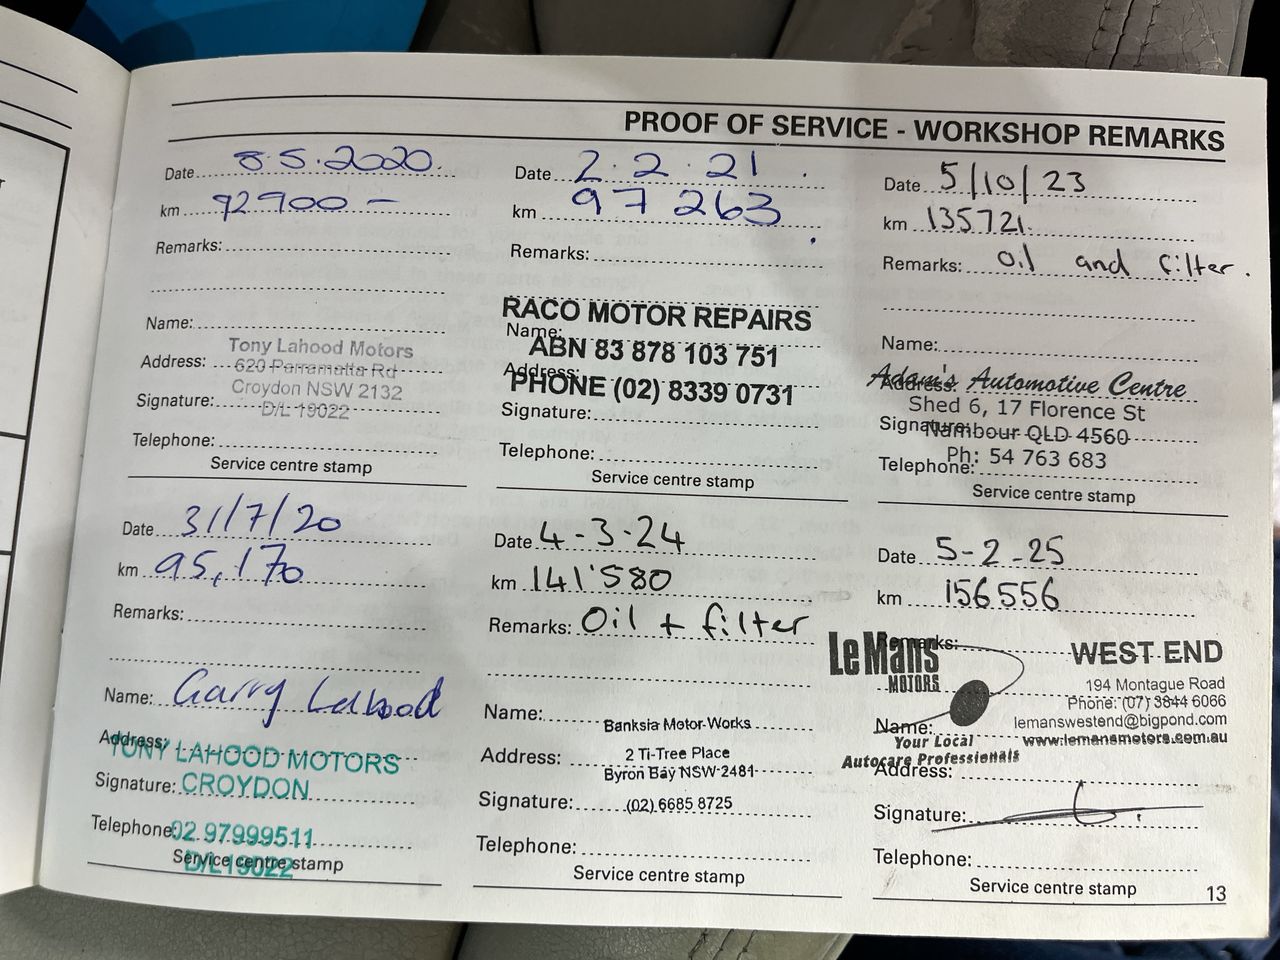 PROOF OF SERVICE - WORKSHOP REMARKS
Date 8.5.2020.
km 92900 -
Remarks:
Name:
Tony Lahood Motors
Address: 620 Parramatta Rd
Croydon NSW 2132
Signature: D/L 19022
Telephone:
Service centre stamp
Date 31/7/20
km 95,170
Remarks:
Name: Garry Lahood
Address:
TONY LAHOOD MOTORS
Signature: CROYDON
Telephone: 02 97999511
Service centre stamp
D/L 19022
Date 2.2.21.
km 97263
Remarks:
RACO MOTOR REPAIRS
Name:
ABN 83 878 103 751
Address:
PHONE (02) 8339 0731
Signature:
Telephone:
Service centre stamp
Date 4-3-24
km 141'580
Remarks: Oil + filter
Name: Banksia Motor Works
Address: 2 Ti-Tree Place
Byron Bay NSW 2481
Signature: (02) 6685 8725
Telephone:
Service centre stamp
Date 5/10/23
km 135721.
Remarks: oil and filter.
Name:
Adam's Automotive Centre
Address:
Shed 6, 17 Florence St
Signature:
Nambour QLD 4560
Ph: 54 763 683
Telephone:
Service centre stamp
Date 5-2-25
km 156556
Remarks:
Le Mans WEST END
MOTORS
194 Montague Road
Phone: (07) 3844 6066
Name: lemanswestend@bigpond.com
Your Local www.lemansmotors.com.au
Autocare Professionals
Address:
Signature:
Telephone:
Service centre stamp
13